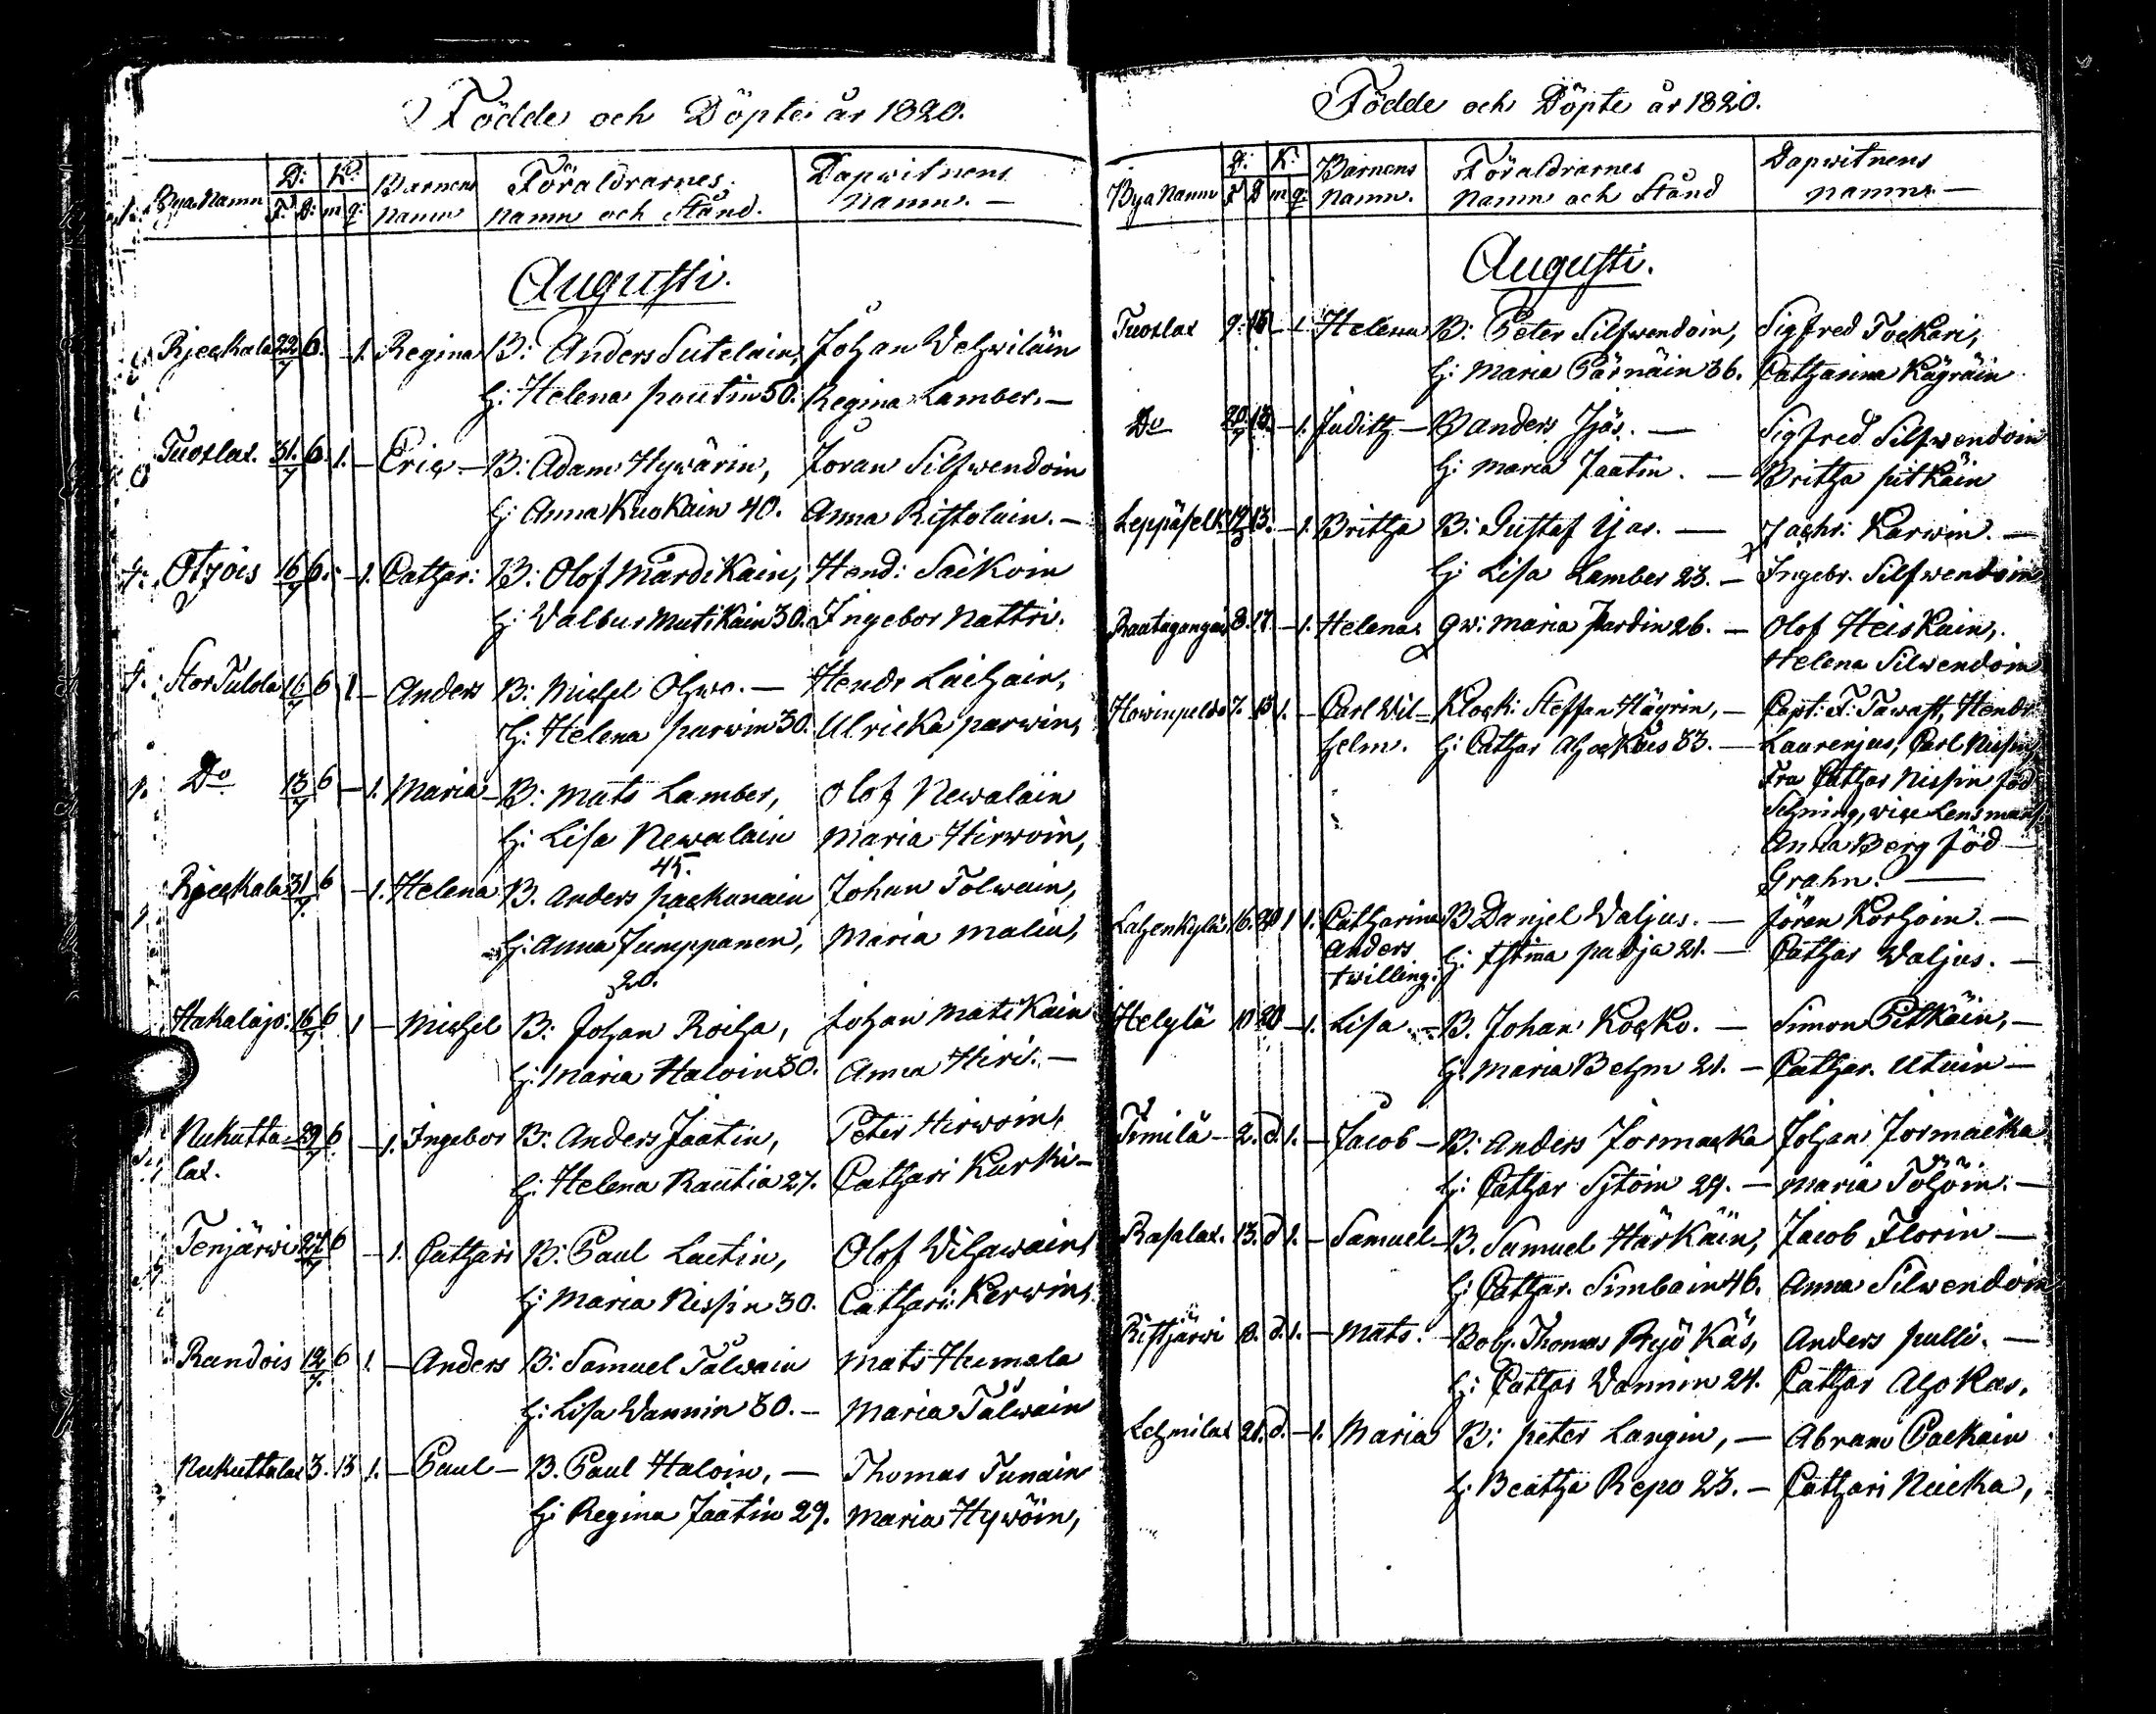 Födde och Döpte år 1820.
Bya Namn D: K: Barnens Föräldrarnes Dopwitnens
F. D: m q: namn namn och Stånd. namn. —
Augusti.
Rjeckala 22/7 6. – 1. Regina B: Anders Sutelain, Johan Wehwiläin
H: Helena pautin 50. Regina Lamber. —
Tuoxlax. 31./7 6. 1. – Eric – B: Adam Hywärin, Jöran Silfwendoin
H: Anna Kuokain 40. Anna Ristolain. —
Otzois 16/7 6. – 1. Cathar: B: Olof MårdiKain, Hend: Saikoin
H: Walbur Mutikain 30. Ingebor Nattri.
Stor Tulola 16/7 6 1 – Anders B: Michel Ohwo. — Hendr Laihain,
H: Helena parwin 30. Ulricka parwin,
Do 13/7 6 – 1. Maria – B: Mats Lamber, Olof Newaläin
H: Lisa Newalain Maria Hirwoin,
45.
Rjeckala 31/7. 6 – 1. Helena B. Anders packanain Johan Tolwain,
H: Anna Jumppanen, Maria Malin,
20.
Hakalajo: 16/7 6 1 – Michel B: Johan Roiha, Johan Matikain
H: Maria Haloin 30. Anna Hiri. —
Nukutta= 29/7 6 – 1. Ingebor B: Anders Jaatin, Peter Hirwoin,
lax. H: Helena Rautia 27. Cathari Kurki –
Tenjärwi 27/7 6 – 1. Cathari B: Paul Laetin, Olof Wihawain,
H: Maria Nissin 30. Cathari: Kerwin,
Randois 12/7. 6 1. – Anders B: Samuel Tålwain Mats Humala
H: Lisa Wannin 30. – Maria Tålwain
Nukuttalax 3. 13 1. – Paul – B. Paul Haloin, — Thomas Tunain
H: Regina Jaatin 29. Maria Hywöin,
Födde och Döpte år 1820.
D: K: Barnens Föräldrarnes Dopwitnens
Bya Namn F D m q: namn. namn och Stånd namn. —
Augusti.
Tuoxlax 9. 13 – 1. Helena B: Peter Silfwendoin, Sigfred Tockari,
H: Maria Pärnäin 36. Catharina Kägräin
Do 20/7 13. – 1. Judith – B Anders Ijäs. — Sigfred Silfwendoin
H: Maria Jaatin. — Britha pitkäin
Leppäselk 13. – 1. Britha B: Gustaf Ijas. — Zachr. Karwin. —
H: Lisa Lamber 23. – Ingebr. Silfwendoin
Raatagangas 8. 17 – 1. Helena. qw: Maria pardin 26. – Olof Heiskain,
Helena Silwendoin
Howinpeldo 7. 13 1. – Carl Wil= Klock: Steffan Hägrin, – Capt: F: Tawast, Hendr
helm. H: Cathar Ahockas 33. – Laurenjus, Carl Nissin,
Fra Cathar Nissin föd
wice Lensmans
Anna Berg föd —
Grahn. —
Lahenkylä 16. 20 1 1. Catharina B Danjel Waljus. — Jören Korhoin. —
Anders H: Stina padja 21. — Cathar Waljus. —
twilling.
Helylä 10 20 – 1. Lisa. – B. Johan Kocko. — Simon Pitkäin, –
H: Maria Behm 21. – Cathar. Utuin –
Timilä – 2. d. 1. – Jacob – B: Anders Jormacka Johan Jormacka
H: Cathar Sjtoin 29. – Maria Töhöin. –
Rasalax. 13. d 1. – Samuel – B. Samuel Härkäin, Jacob Florin —
H: Cathar. Simbain 46. Anna Silwendoin
Ristjärwi 18. d. 1. – Mats. – Bob. Thomas Ryö Käs, Anders pulli. —
H: Cathar Wannin 24. Cathar Ahokas,
Lehmilax 21. d. – 1. Maria B: peter Langin, – Abram Packain
H: Beatha Repo 23. – Cathari Nucka,